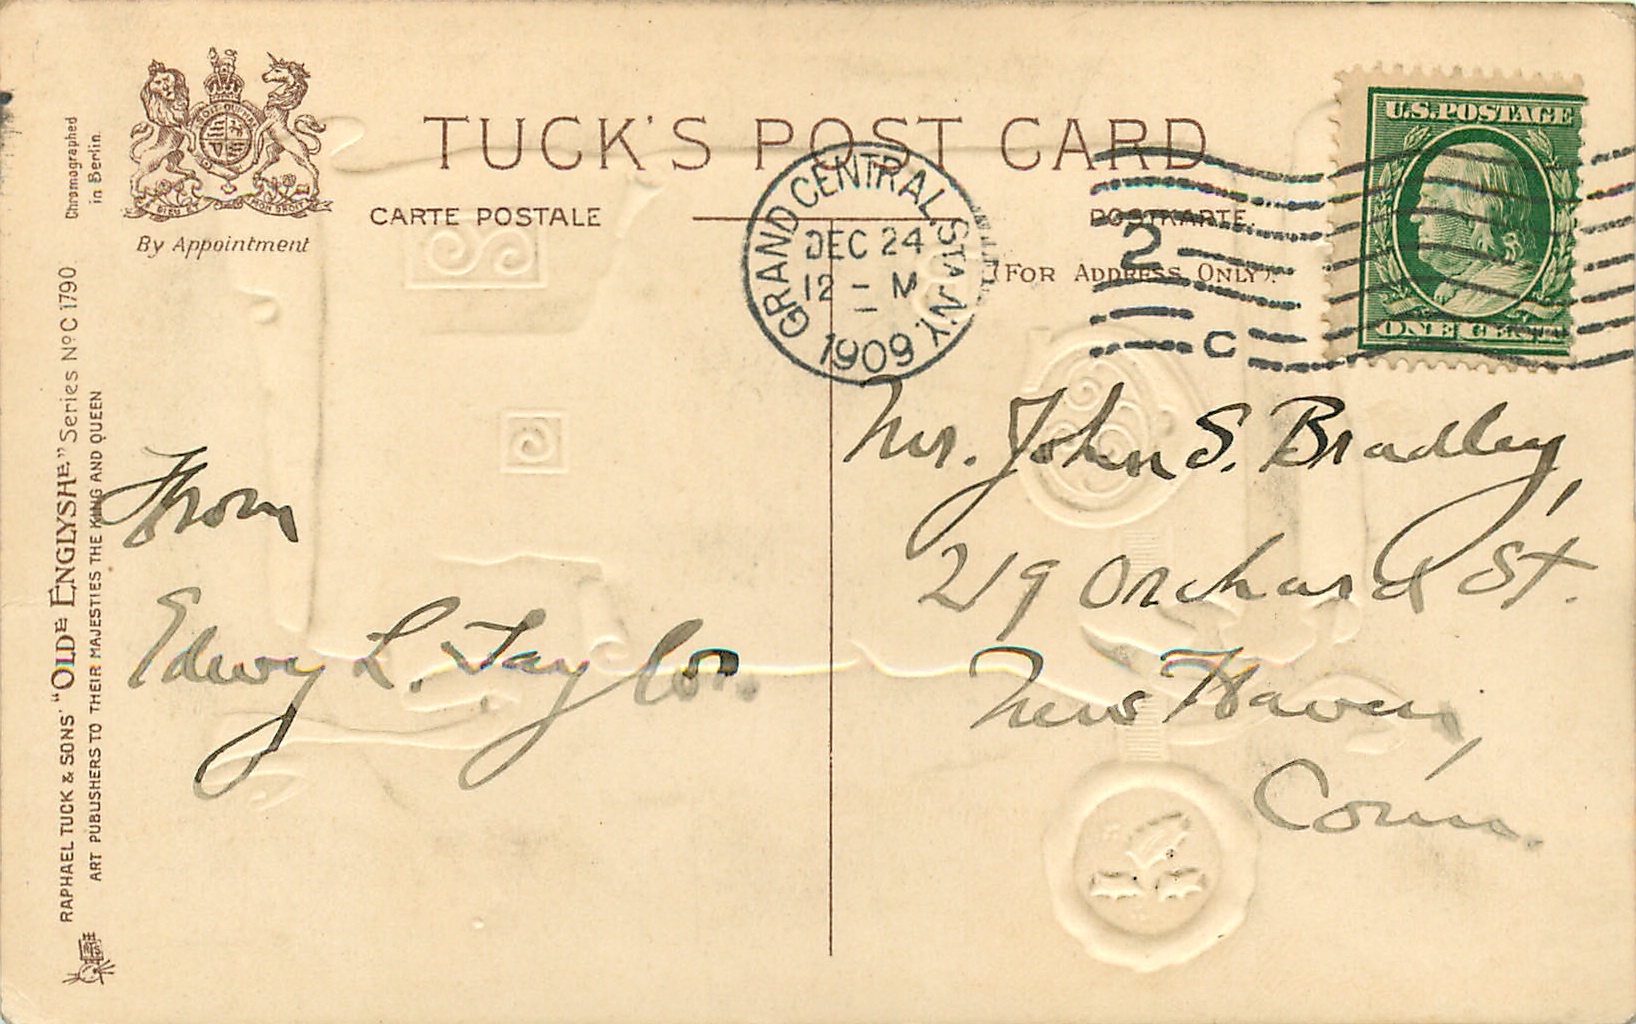 TUCK'S POST CARD
CARTE POSTALE
POSTKARTE.
(FOR ADDRESS ONLY).
By Appointment
Chromographed
in Berlin
RAPHAEL TUCK & SONS' "OLDE ENGLYSHE" Series No C 1790
ART PUBLISHERS TO THEIR MAJESTIES THE KING AND QUEEN
GRAND CENTRAL STA. N.Y.
DEC 24
12 - M
1909
2
C
U.S. POSTAGE
ONE CENT
From
Edwy L. Taylor.
Mr. John S. Bradley,
219 Orchard St.
New Haven,
Conn.